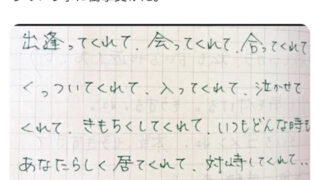 出逢ってくれて、会ってくれて、合ってくれて
くっついてくれて、入ってくれて、泣かせて
くれて、きもちくしてくれて、いつもどんな時も
あなたらしく居てくれて、対峙してくれて..